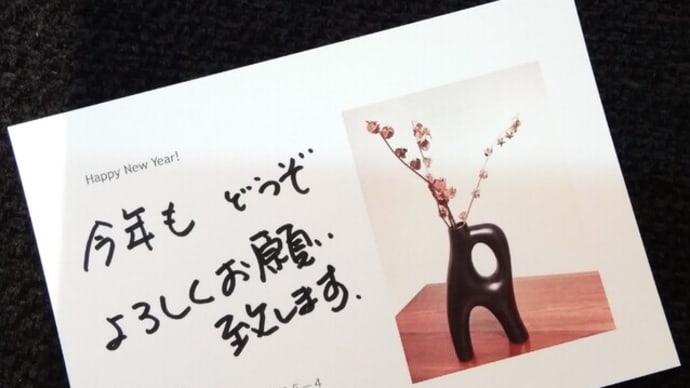 Happy New Year!
今年も どうぞ
よろしくお願い
致します.
5-4